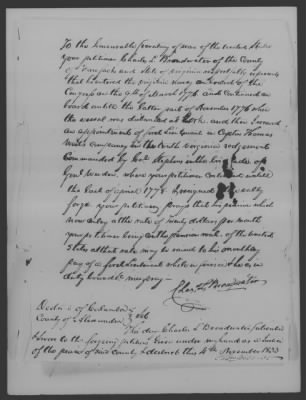 To the honourable Secretary of war of the United States
Your petitioner Charles L Broadwater of the County
of Fairfax and State of virginia respectfully represents
that he entered the virginia navy on bord of the
Congress on the 4th of March 1776 and continued on
board untill the latter part of November 1776 when
the vessel was at and then I received
an appointment of first lieutenant in Captin Thomas
Wests company in the tenth verginia redgement
Commanded by Col Stephens in the
Genl Weedon where your petitioner continued untill
the last of april 1778 I resigned
fore your petitioner prays that his pension which
now only at the rate of twenty dollars per month
your petitioner being on the pension role of the united
states at that rate may be raised to his monthly
pay of a first lieutenant which on present he is in
duty bound may pray
Chas L Broadwater
District of Columbia
County of Alexandria
This day Charles L Broadwater subscribed
& sworn to the foregoing petition Given under my hand as a Justice
of the peace of said County & district this 4th November 1833